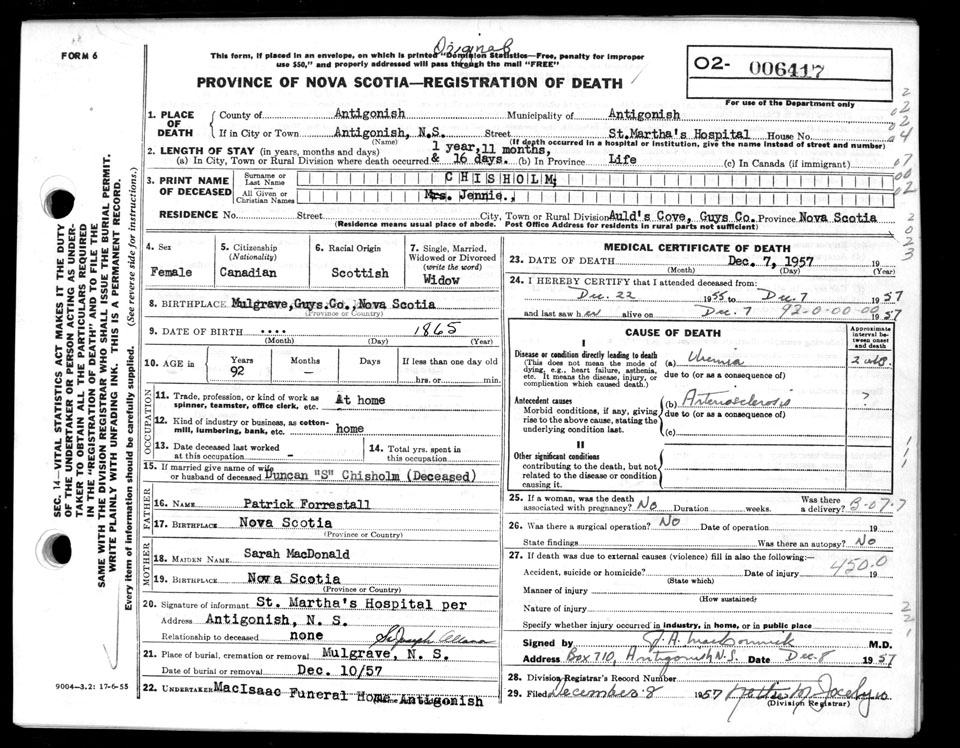 FORM 6
Original
This form, if placed in an envelope, on which is printed "Dominion Statistics—Free, penalty for improper
use $50," and properly addressed will pass through the mail "FREE"
PROVINCE OF NOVA SCOTIA—REGISTRATION OF DEATH
O2- 006417
For use of the Department only
1. PLACE OF DEATH
County of Antigonish Municipality of Antigonish
If in City or Town Antigonish, N.S. Street St.Martha's Hospital House No.
(Name) (If death occurred in a hospital or institution, give the name instead of street and number)
2. LENGTH OF STAY (in years, months and days) 1 year,11 months,
(a) In City, Town or Rural Division where death occurred & 16 days. (b) In Province Life (c) In Canada (if immigrant)
3. PRINT NAME OF DECEASED
Surname or Last Name CHISHOLM,
All Given or Christian Names Mrs. Jennie.,
RESIDENCE No. Street City, Town or Rural Division Auld's Cove, Guys Co. Province Nova Scotia
(Residence means usual place of abode. Post Office Address for residents in rural parts not sufficient)
4. Sex Female
5. Citizenship (Nationality) Canadian
6. Racial Origin Scottish
7. Single, Married, Widowed or Divorced (write the word) Widow
8. BIRTHPLACE Mulgrave,Guys.Co., Nova Scotia
(Province or Country)
9. DATE OF BIRTH .... 1865
(Month) (Day) (Year)
10. AGE in Years 92 Months — Days If less than one day old hrs. or min.
OCCUPATION
11. Trade, profession, or kind of work as spinner, teamster, office clerk, etc. At home
12. Kind of industry or business, as cotton-mill, lumbering, bank, etc. home
13. Date deceased last worked at this occupation —
14. Total yrs. spent in this occupation
15. If married give name of wife or husband of deceased Duncan "S" Chisholm (Deceased)
FATHER
16. NAME Patrick Forrestall
17. BIRTHPLACE Nova Scotia
(Province or Country)
MOTHER
18. MAIDEN NAME Sarah MacDonald
19. BIRTHPLACE Nova Scotia
(Province or Country)
20. Signature of informant St. Martha's Hospital per
Address Antigonish, N. S.
Relationship to deceased none
21. Place of burial, cremation or removal Mulgrave, N. S.
Date of burial or removal Dec. 10/57
22. UNDERTAKER MacIsaac Funeral Home Antigonish
MEDICAL CERTIFICATE OF DEATH
23. DATE OF DEATH Dec. 7, 1957 19
(Month) (Day) (Year)
24. I HEREBY CERTIFY that I attended deceased from:
Dec. 22 1955 to Dec. 7 1957
and last saw her alive on Dec. 7 92-0-00-00 1957
CAUSE OF DEATH
Approximate interval between onset and death
I
Disease or condition directly leading to death
(This does not mean the mode of dying, e.g., heart failure, asthenia, etc. It means the disease, injury, or complication which caused death.)
(a) Uremia 2 wks.
due to (or as a consequence of)
Antecedent causes
Morbid conditions, if any, giving rise to the above cause, stating the underlying condition last.
(b) Arteriosclerosis ?
due to (or as a consequence of)
(c)
II
Other significant conditions
contributing to the death, but not related to the disease or condition causing it.
25. If a woman, was the death associated with pregnancy? No Duration weeks. Was there a delivery?
26. Was there a surgical operation? No Date of operation 19
State findings Was there an autopsy? No
27. If death was due to external causes (violence) fill in also the following:—
450.0
Accident, suicide or homicide? Date of injury 19
(State which)
Manner of injury
(How sustained)
Nature of injury
Specify whether injury occurred in industry, in home, or in public place
Signed by J. A. MacCormick M.D.
Address Box 710, Antigonish N.S. Date Dec. 8 1957
28. Division Registrar's Record Number
29. Filed December 8 1957
(Division Registrar)
SEC. 14—VITAL STATISTICS ACT MAKES IT THE DUTY
OF THE UNDERTAKER OR PERSON ACTING AS UNDER-
TAKER TO OBTAIN ALL THE PARTICULARS REQUIRED
IN THE "REGISTRATION OF DEATH" AND TO FILE THE
SAME WITH THE DIVISION REGISTRAR WHO SHALL ISSUE THE BURIAL PERMIT.
WRITE PLAINLY WITH UNFADING INK. THIS IS A PERMANENT RECORD.
Every item of information should be carefully supplied. (See reverse side for instructions.)
9004—3.2: 17-6-55